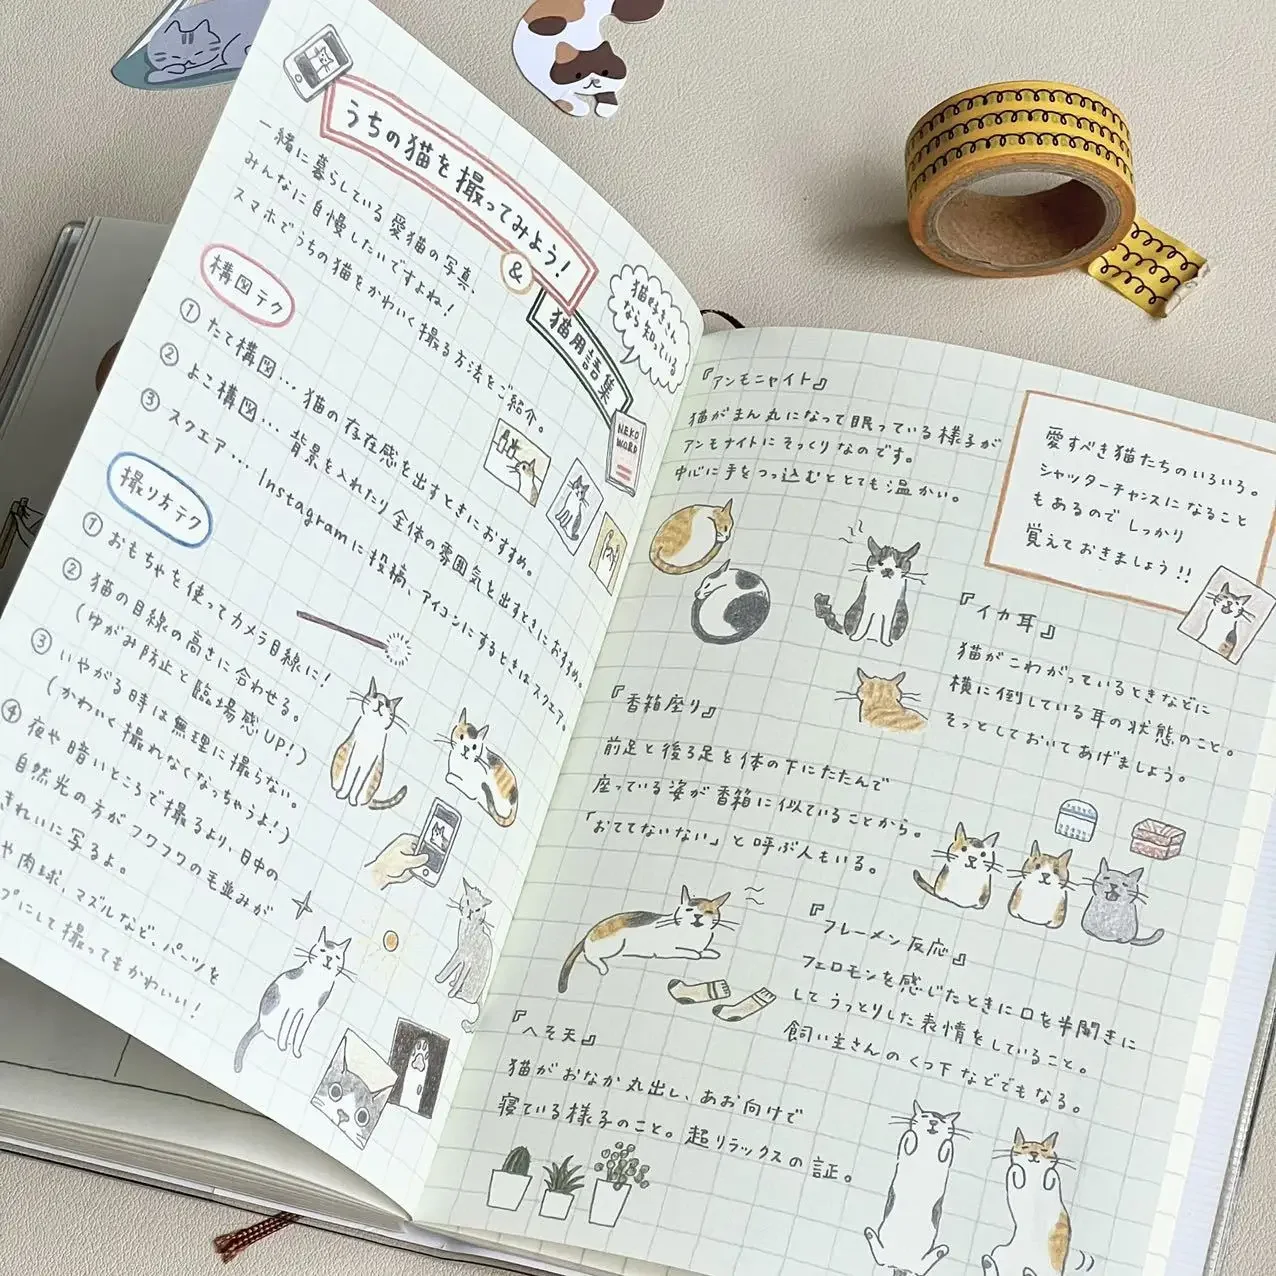 うちの猫を撮ってみよう!
&
猫用語集
猫好きさん
なら知っている
NEKO
WORD
一緒に暮らしている愛猫の写真、
みんなに自慢したいですよね!
スマホでうちの猫をかわいく撮る方法をご紹介。
構図テク
① たて構図… 猫の存在感を出すときにおすすめ。
② よこ構図… 背景を入れたり全体の雰囲気を出すときにおすすめ。
③ スクエア… Instagramに投稿、アイコンにするときはスクエア。
撮り方テク
① おもちゃを使ってカメラ目線に!
② 猫の目線の高さに合わせる。
(ゆがみ防止と臨場感UP!)
③ いやがる時は無理に撮らない。
(かわいく撮れなくなっちゃうよ!)
④ 夜や暗いところで撮るより、日中の
自然光の方がフワフワの毛並みが
きれいに写るよ。
や肉球、マズルなど、パーツを
プにして撮ってもかわいい!
『アンモニャイト』
猫がまん丸になって眠っている様子が
アンモナイトにそっくりなのです。
中心に手をつっ込むととても温かい。
愛すべき猫たちのいろいろ。
シャッターチャンスになること
もあるのでしっかり
覚えておきましょう!!
『イカ耳』
猫がこわがっているときなどに
横に倒している耳の状態のこと。
そっとしておいてあげましょう。
『香箱座り』
前足と後ろ足を体の下にたたんで
座っている姿が香箱に似ていることから。
「おててないない」と呼ぶ人もいる。
『フレーメン反応』
フェロモンを感じたときに口を半開きに
してうっとりした表情をしていること。
飼い主さんのくつ下などでもなる。
『へそ天』
猫がおなか丸出し、あお向けで
寝ている様子のこと。超リラックスの証。